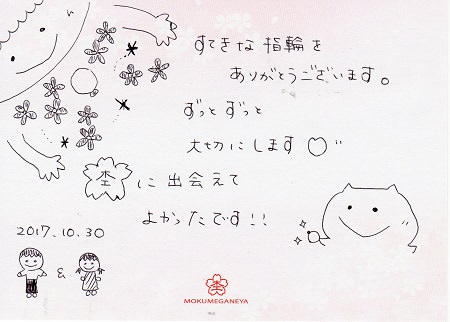 すてきな指輪を
ありがとうございます。
ずっとずっと
大切にします♡"
杢に出会えて
よかったです!!
2017.10.30
&
MOKUMEGANEYA